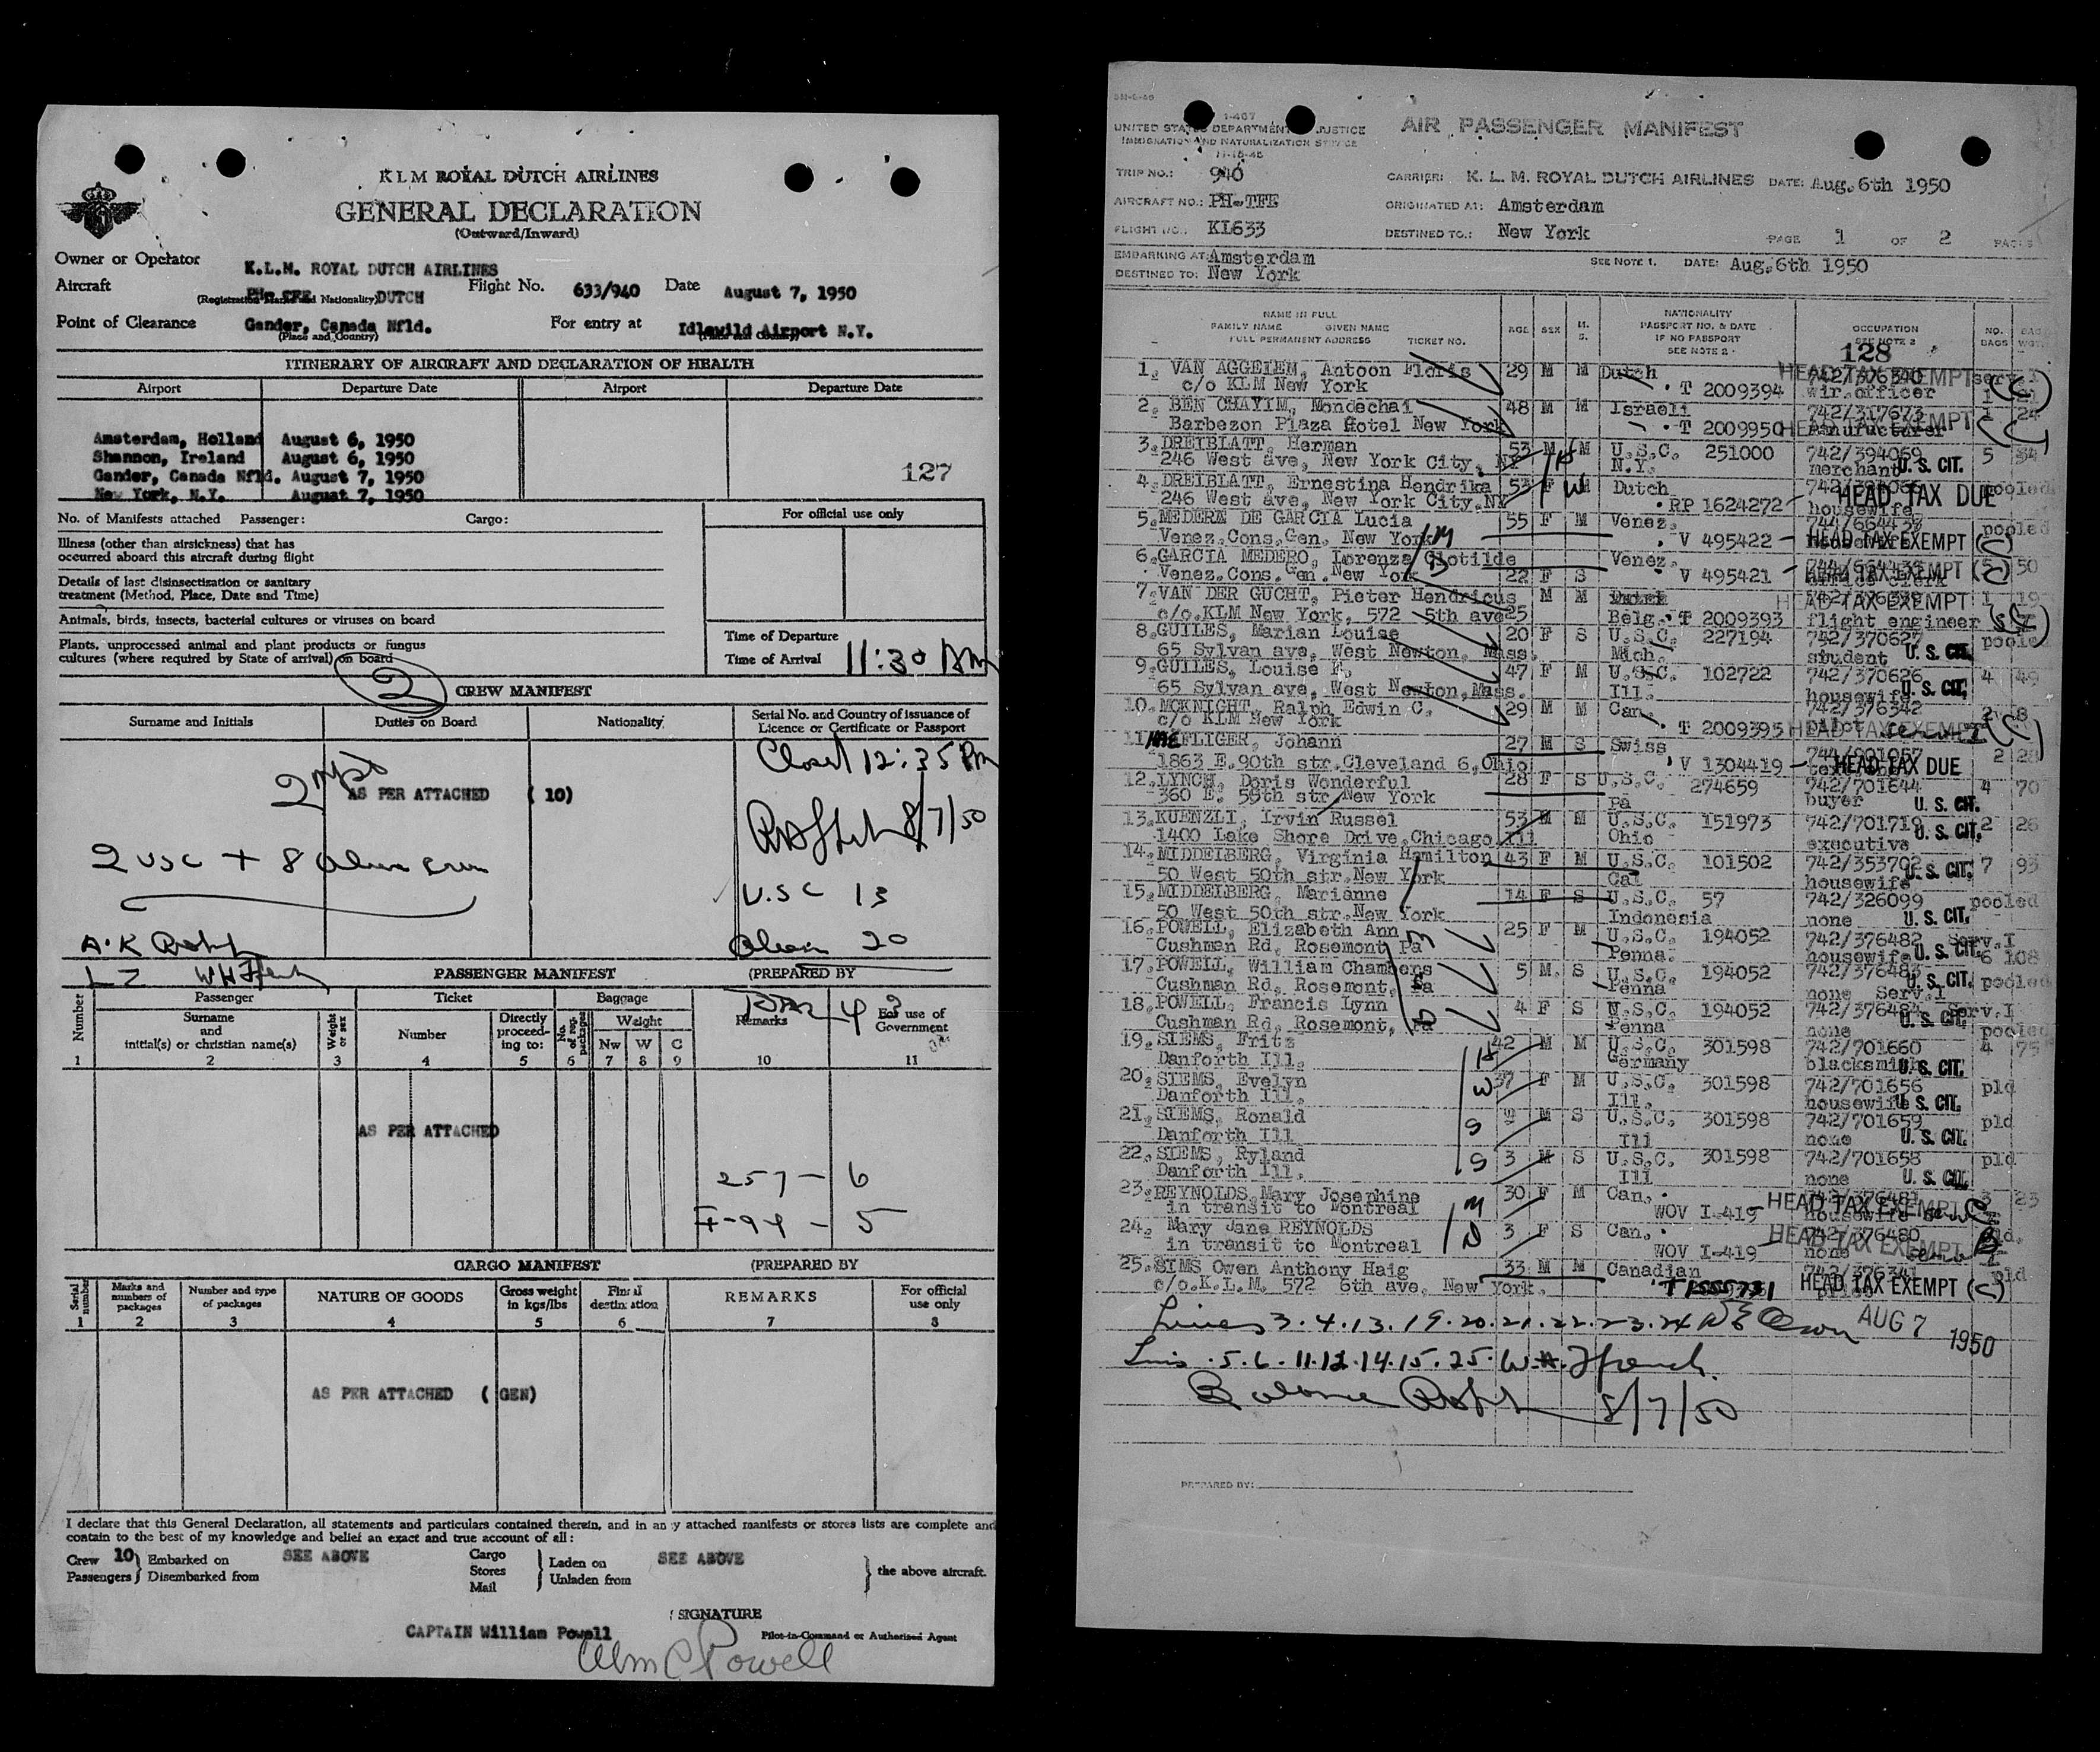 KLM ROYAL DUTCH AIRLINES
GENERAL DECLARATION
(Outward/Inward)
Owner or Operator K.L.M. ROYAL DUTCH AIRLINES
Aircraft DUTCH Flight No. 633/940 Date August 7, 1950
(Registration Marks and Nationality)
Point of Clearance Gander, Canada Nfld. For entry at Idlewild Airport N.Y.
(Place and Country) (Place and Country)
ITINERARY OF AIRCRAFT AND DECLARATION OF HEALTH
Airport Departure Date Airport Departure Date
Amsterdam, Holland August 6, 1950
Shannon, Ireland August 6, 1950
Gander, Canada Nfld. August 7, 1950
New York, N.Y. August 7, 1950
127
No. of Manifests attached Passenger: Cargo: For official use only
Illness (other than airsickness) that has
occurred aboard this aircraft during flight
Details of last disinsectization or sanitary
treatment (Method, Place, Date and Time)
Animals, birds, insects, bacterial cultures or viruses on board
Plants, unprocessed animal and plant products or fungus
cultures (where required by State of arrival) on board
Time of Departure
Time of Arrival 11:30 AM
2
CREW MANIFEST
Surname and Initials Duties on Board Nationality Serial No. and Country of issuance of
Licence or Certificate or Passport
Closed 12:35 PM
AS PER ATTACHED (10)
8/7/50
2 USC + 8 alien crew
U.S.C 13
Alien 20
PASSENGER MANIFEST (PREPARED BY
Number Passenger Ticket Baggage
Surname
and
initial(s) or christian name(s)
Weight or sex Number Directly
proceed-
ing to:
No. of reg. packages Weight Nw W C Remarks For use of
Government
1 2 3 4 5 6 7 8 9 10 11
AS PER ATTACHED
257 - 6
I-94 - 5
CARGO MANIFEST (PREPARED BY
Serial number Marks and
numbers of
packages
Number and type
of packages
NATURE OF GOODS Gross weight
in kgs/lbs
Final
destination
REMARKS For official
use only
1 2 3 4 5 6 7 8
AS PER ATTACHED (GEN)
I declare that this General Declaration, all statements and particulars contained therein, and in any attached manifests or stores lists are complete and
contain to the best of my knowledge and belief an exact and true account of all:
Crew 10 Embarked on SEE ABOVE Cargo Laden on SEE ABOVE
Passengers Disembarked from Stores Unladen from the above aircraft.
Mail
SIGNATURE
CAPTAIN William Powell Pilot-in-Command or Authorised Agent
Wm C Powell
1-467
UNITED STATES DEPARTMENT OF JUSTICE
IMMIGRATION AND NATURALIZATION SERVICE
11-15-45
AIR PASSENGER MANIFEST
TRIP NO.: 940 CARRIER: K. L. M. ROYAL DUTCH AIRLINES DATE: Aug.6th 1950
AIRCRAFT NO.: PH-TFE ORIGINATED AT: Amsterdam
FLIGHT NO.: KL633 DESTINED TO.: New York PAGE 1 OF 2 PAGES
EMBARKING AT: Amsterdam SEE NOTE 1. DATE: Aug.6th 1950
DESTINED TO: New York
NAME IN FULL
FAMILY NAME GIVEN NAME
FULL PERMANENT ADDRESS TICKET NO.
AGE SEX M. S.
NATIONALITY
PASSPORT NO. & DATE
IF NO PASSPORT
SEE NOTE 2
OCCUPATION
SEE NOTE 2
NO. BAGS BAG WGT.
128
1. VAN AGGELEN, Antoon Floris 29 M M Dutch 742/376340 HEAD TAX EXEMPT serv.I
c/o KLM New York T 2009394 wir.officer 1 21 (C)
2. BEN CHAYIM, Mondechai 48 M M Israeli 742/317673 1 24
Barbezon Plaza Hotel New York T 2009950 HEAD TAX EXEMPT (C)
3. DREIBLATT, Herman 53 M M U.S.C. 251000 742/394069 5 34
246 West ave, New York City, NY N.Y. merchant U.S. CIT.
4. DREIBLATT, Ernestina Hendrika 53 F M Dutch pooled
246 West ave, New York City.NY RP 1624272 housewife HEAD TAX DUE
5. MEDERE DE GARCIA Lucia 55 F M Venez. 744/664437 pooled
Venez.Cons.Gen. New York V 495422 HEAD TAX EXEMPT (C)
6. GARCIA MEDERO, Lorenza Clotilde Venez. 50
Venez.Cons.Gen.New York 22 F S V 495421 HEAD TAX EXEMPT (C)
7. VAN DER GUCHT, Pieter Hendricus M M HEAD TAX EXEMPT 1 19
c/o.KLM New York, 572 5th ave 25 Belg. T 2009393 flight engineer
8. GUILES, Marian Louise 20 F S U.S.C. 227194 742/370627 pooled
65 Sylvan ave, West Newton, Mass. Mich. student U.S. CIT.
9. GUILES, Louise F. 47 F M U.S.C. 102722 742/370626 4 49
65 Sylvan ave, West Newton,Mass. Ill. housewife U.S. CIT.
10. MCKNIGHT, Ralph Edwin C. 29 M M Can. 742/376342 2 8
c/o KLM New York T 2009395 pilot HEAD TAX EXEMPT (C)
11. HAEFLIGER, Johann 27 M S Swiss 744/901057 2 28
1863 E.90th str.Cleveland 6,Ohio V 1304419 HEAD TAX DUE
12. LYNCH, Doris Wonderful 28 F S U.S.C. 274659 742/701644 4 70
360 E. 55th str.New York Pa buyer U.S. CIT.
13. KUENZLI, Irvin Russel 53 M M U.S.C. 151973 742/701719 2 26
1400 Lake Shore Drive,Chicago Ill Ohio executive U.S. CIT.
14. MIDDELBERG, Virginia Hamilton 43 F M U.S.C. 101502 742/353702 7 93
50 West 50th str.New York Cal housewife U.S. CIT.
15. MIDDELBERG, Marianne 14 F S U.S.C. 57 742/326099 pooled
50 West 50th str.New York Indonesia none U.S. CIT.
16. POWELL, Elizabeth Ann 25 F M U.S.C. 194052 742/376482 Serv.I
Cushman Rd, Rosemont Pa Penna. housewife U.S. CIT. 6 108
17. POWELL, William Chambers 5 M S U.S.C. 194052 742/376483 pooled
Cushman Rd, Rosemont, Pa Penna none Serv.I U.S. CIT.
18. POWELL, Francis Lynn 4 F S U.S.C. 194052 742/376484 Serv.I
Cushman Rd, Rosemont, Pa Penna none U.S. CIT. pooled
19. SIEMS, Fritz 42 M M U.S.C. 301598 742/701660 4 75
Danforth Ill. Germany blacksmith U.S. CIT.
20. SIEMS, Evelyn 37 F M U.S.C. 301598 742/701656 pld
Danforth Ill. Ill. housewife U.S. CIT.
21. SIEMS, Ronald 9 M S U.S.C. 301598 742/701659 pld
Danforth Ill Ill none U.S. CIT.
22. SIEMS, Ryland 3 M S U.S.C. 301598 742/701658 pld
Danforth Ill. Ill none U.S. CIT.
23. REYNOLDS Mary Josephine 30 F M Can. 742/376481 3 23
in transit to Montreal WOV I-419 housewife HEAD TAX EXEMPT
24. Mary Jane REYNOLDS 3 F S Can. 742/376480 pld.
in transit to Montreal WOV I-419 none HEAD TAX EXEMPT
25. SIMS Owen Anthony Haig 33 M M Canadian 742/376341 pld
c/o.K.L.M. 572 6th ave, New York. T1555731 HEAD TAX EXEMPT (C)
Lines 3.4.13.19.20.21.22.23.24 AUG 7 1950
Lines .5.6.11.12.14.15.25. W.H. Ffrench
Balance 8/7/50
PREPARED BY: